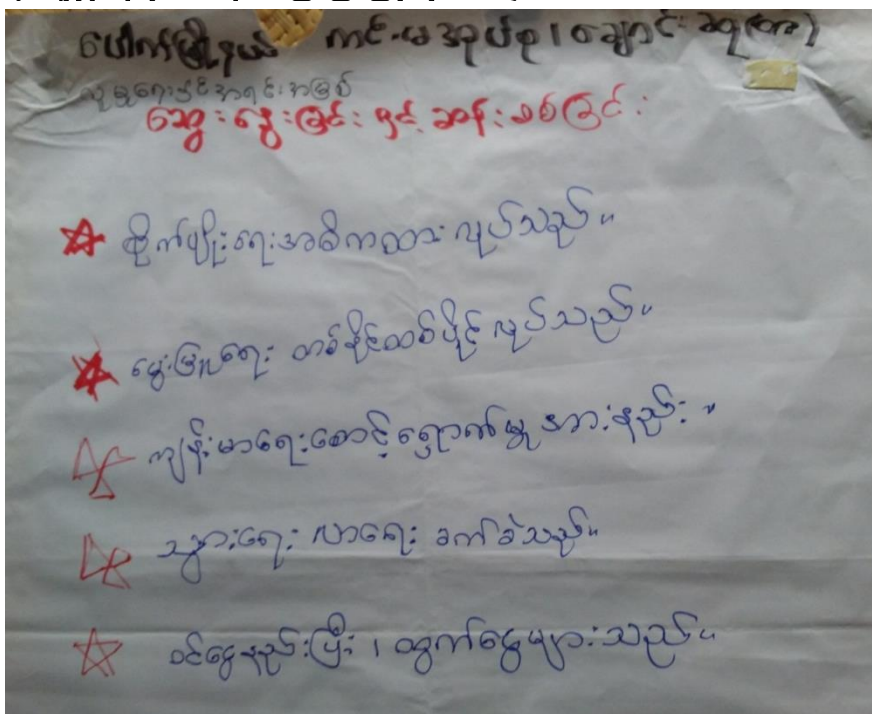 ပေါက်မြို့နယ် ကင်းမအုပ်စု၊ ချောင်းဆူ(ထ)
လူမှုရေးနှင့်အရင်းအမြစ်
ဆွေးနွေးခြင်းနှင့် ဆန်းစစ်ခြင်း
စိုက်ပျိုးရေးအဓိကထားလုပ်သည်။
မွေးမြူရေး တစ်နိုင်တစ်ပိုင်လုပ်သည်။
ကျန်းမာရေးစောင့်ရှောက်မှုအားနည်း။
သွားရေးလာရေး ခက်ခဲသည်။
ဝင်ငွေနည်းပြီး၊ ထွက်ငွေများသည်။